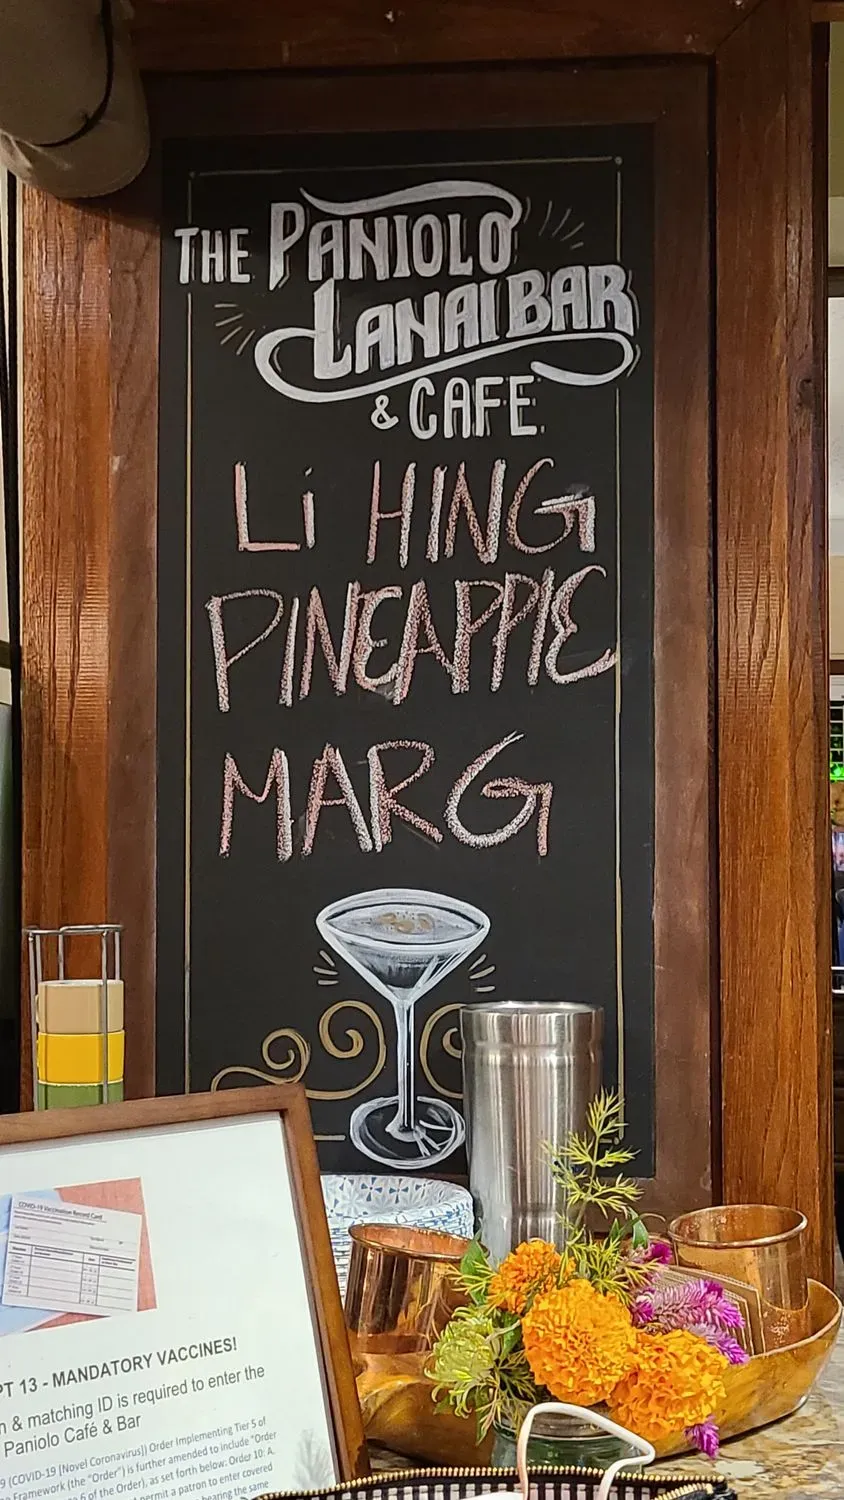 THE PANIOLO
LANAI BAR
& CAFE
Li HING
PINEAPPlE
MARG
COVID-19 Vaccination Record Card
PT 13 - MANDATORY VACCINES!
n & matching ID is required to enter the
Paniolo Café & Bar
9 (COVID-19 [Novel Coronavirus]) Order Implementing Tier 5 of
Framework (the "Order") is further amended to include "Order
6 of the Order), as set forth below: Order 10: A.
permit a patron to enter covered
bearing the same